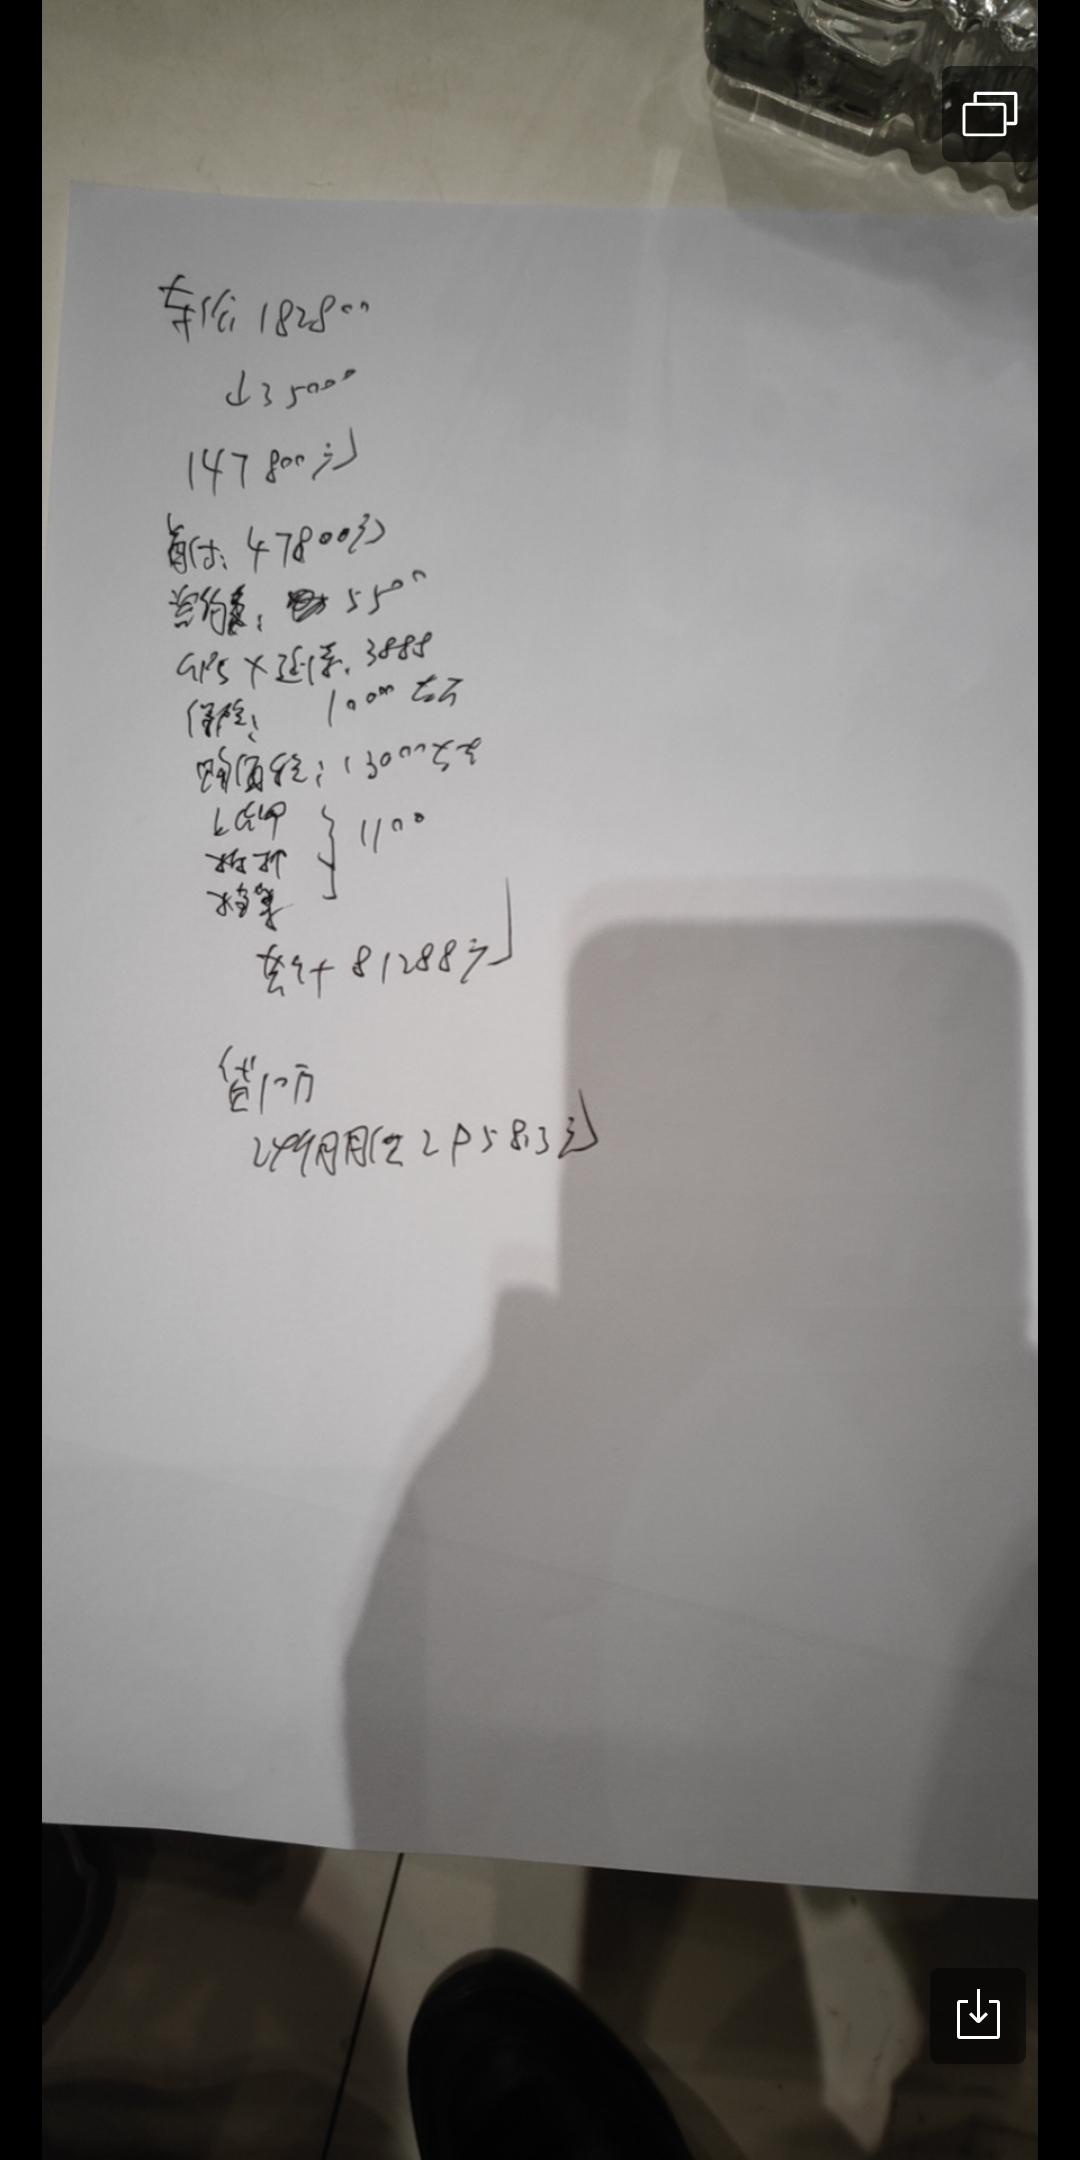 车价 182800
↓35000
147800元
首付: 47800元
5500
GPS+ 3888
保险: 10000左右
购置税: 13000左右
上牌
1100
共计 81288元
贷10万
24个月月供 元